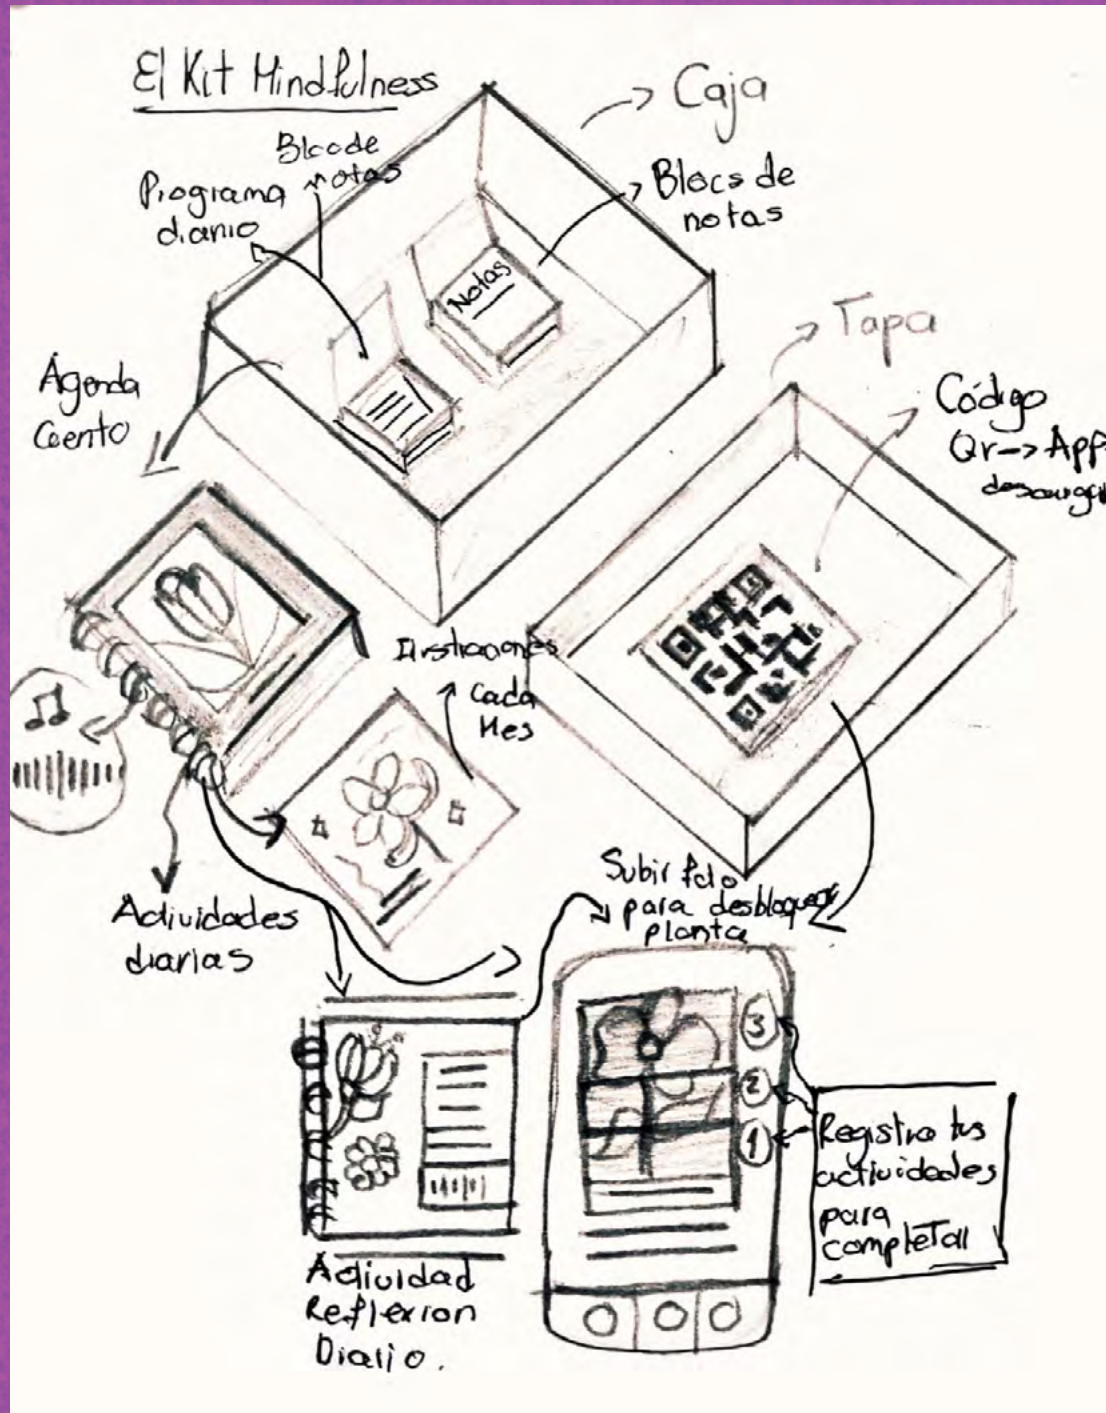 El Kit Mindfulness
Caja
Bloc de
notas
Programa
diario
Blocs de
notas
Notas
Tapa
Agenda
Cuento
Código
Qr-> App
Ilustraciones
Cada
Mes
Actividades
diarias
Subir foto
para desbloquear
planta
3
2
1
Registra tus
actividades
para
completar
Actividad
Reflexion
Diario.